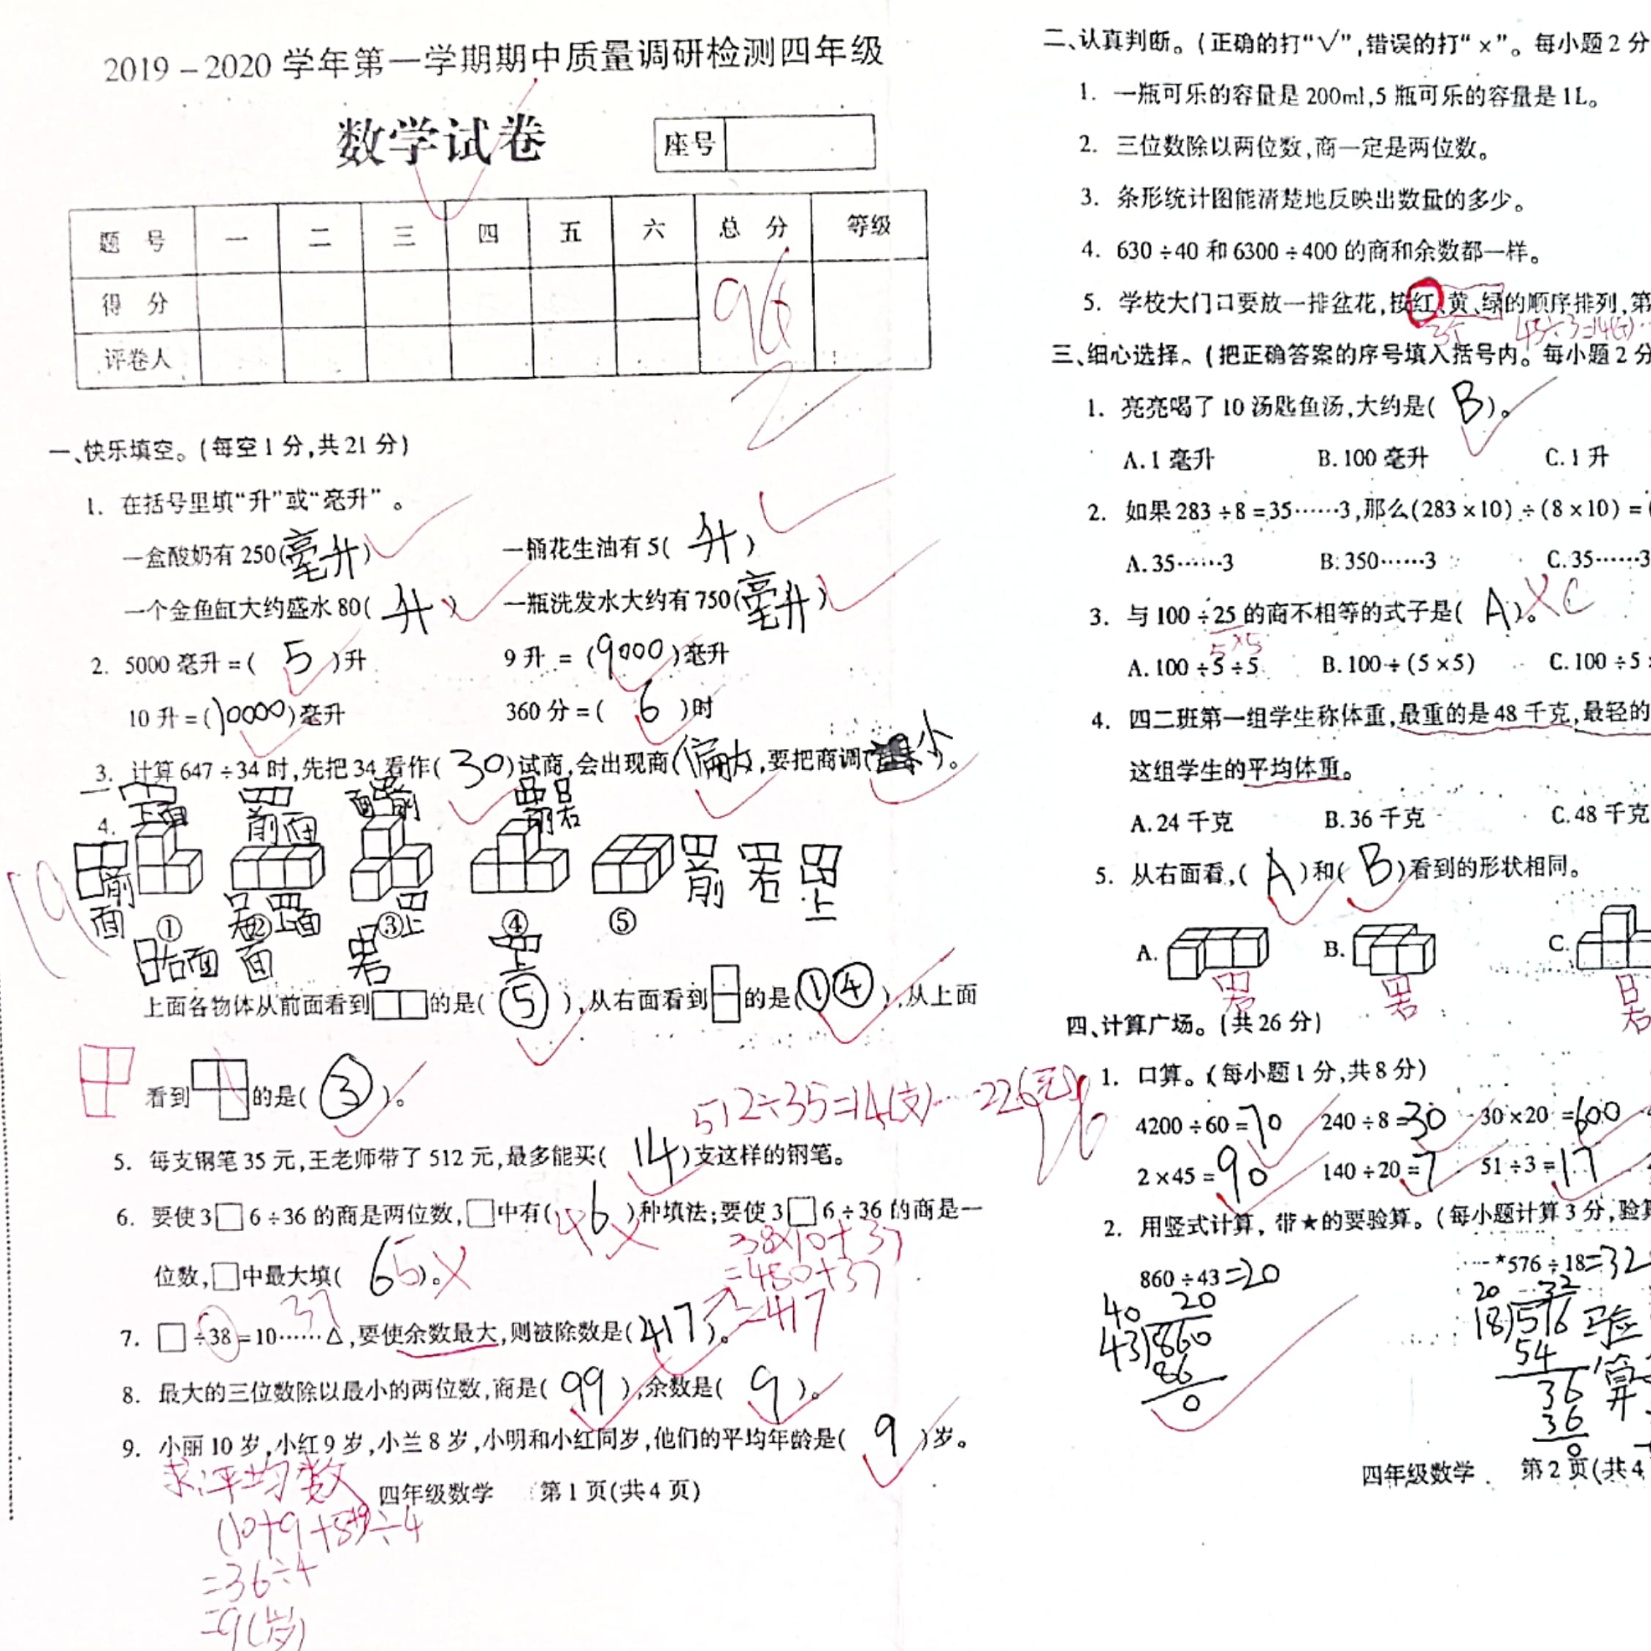 2019－2020 学年第一学期期中质量调研检测四年级
数学试卷
座号
题 号 一 二 三 四 五 六 总 分 等级
得 分
评卷人
一、快乐填空。(每空1分,共21分)
1. 在括号里填“升”或“毫升”。
一盒酸奶有250(毫升) 一桶花生油有5(升)
一个金鱼缸大约盛水80(升) 一瓶洗发水大约有750(毫升)
2. 5000毫升=(5)升 9升=(9000)毫升
10升=(10000)毫升 360分=(6)时
3. 计算647÷34时,先把34看作(30)试商,会出现商(偏大),要把商调(小)。
4.
前面 上面 右面
① ② ③ ④ ⑤
前 右 上
上面各物体从前面看到的是(⑤),从右面看到的是(①④),从上面
看到的是(③)。
512÷35=14(支)……22(元)
5. 每支钢笔35元,王老师带了512元,最多能买(14)支这样的钢笔。
6. 要使3□6÷36的商是两位数,□中有(6)种填法;要使3□6÷36的商是一
位数,□中最大填(6)。
=417
7. □÷38=10……△,要使余数最大,则被除数是(417)。
37
8. 最大的三位数除以最小的两位数,商是(99),余数是(9)。
9. 小丽10岁,小红9岁,小兰8岁,小明和小红同岁,他们的平均年龄是(9)岁。
求平均数
(10+9+8+9)÷4
=36÷4
=9(岁)
四年级数学 第1页(共4页)
二、认真判断。(正确的打“√”,错误的打“×”。每小题2分
1. 一瓶可乐的容量是200ml,5瓶可乐的容量是1L。
2. 三位数除以两位数,商一定是两位数。
3. 条形统计图能清楚地反映出数量的多少。
4. 630÷40和6300÷400的商和余数都一样。
5. 学校大门口要放一排盆花,按红、黄、绿的顺序排列,第
三、细心选择。(把正确答案的序号填入括号内。每小题2分
1. 亮亮喝了10汤匙鱼汤,大约是(B)。
A.1毫升 B.100毫升 C.1升
2. 如果283÷8=35……3,那么(283×10)÷(8×10)=(
A.35……3 B.350……3 C.35……3
3. 与100÷25的商不相等的式子是(A)。C
5×5
A.100÷5÷5 B.100÷(5×5) C.100÷5
4. 四二班第一组学生称体重,最重的是48千克,最轻的
这组学生的平均体重。
A.24千克 B.36千克 C.48千克
5. 从右面看,(A)和(B)看到的形状相同。
A. B. C.
右 右 右
四、计算广场。(共26分)
1. 口算。(每小题1分,共8分)
4200÷60=70 240÷8=30 30×20=600
2×45=90 140÷20=7 51÷3=17
2. 用竖式计算,带★的要验算。(每小题计算3分,验算
860÷43=20 *576÷18=32
40 20 20 32
43 860 18 576 验
86 54 算
0 36
36
0
四年级数学 第2页(共4